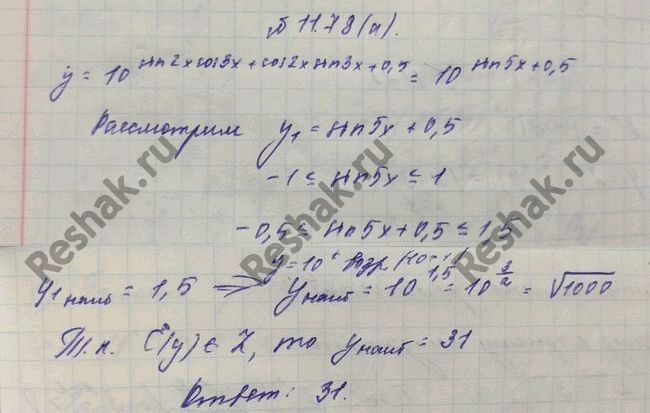 № 11.78(а).
y = 10^{sin2xcos3x + cos2x sin3x + 0,5} = 10^{sin5x + 0,5}
Рассмотрим y₁ = sin5x + 0,5
-1 ≤ sin5x ≤ 1
-0,5 ≤ sin5x + 0,5 ≤ 1,5
y = 10^t возр.
y₁ наиб = 1,5 ⟹ y наиб = 10^{1,5} = 10^{3/2} = √1000
Т.к. (y) ∈ Z, то y наиб = 31
Ответ: 31.
Reshak.ru
Reshak.ru
Reshak.ru
Reshak.ru